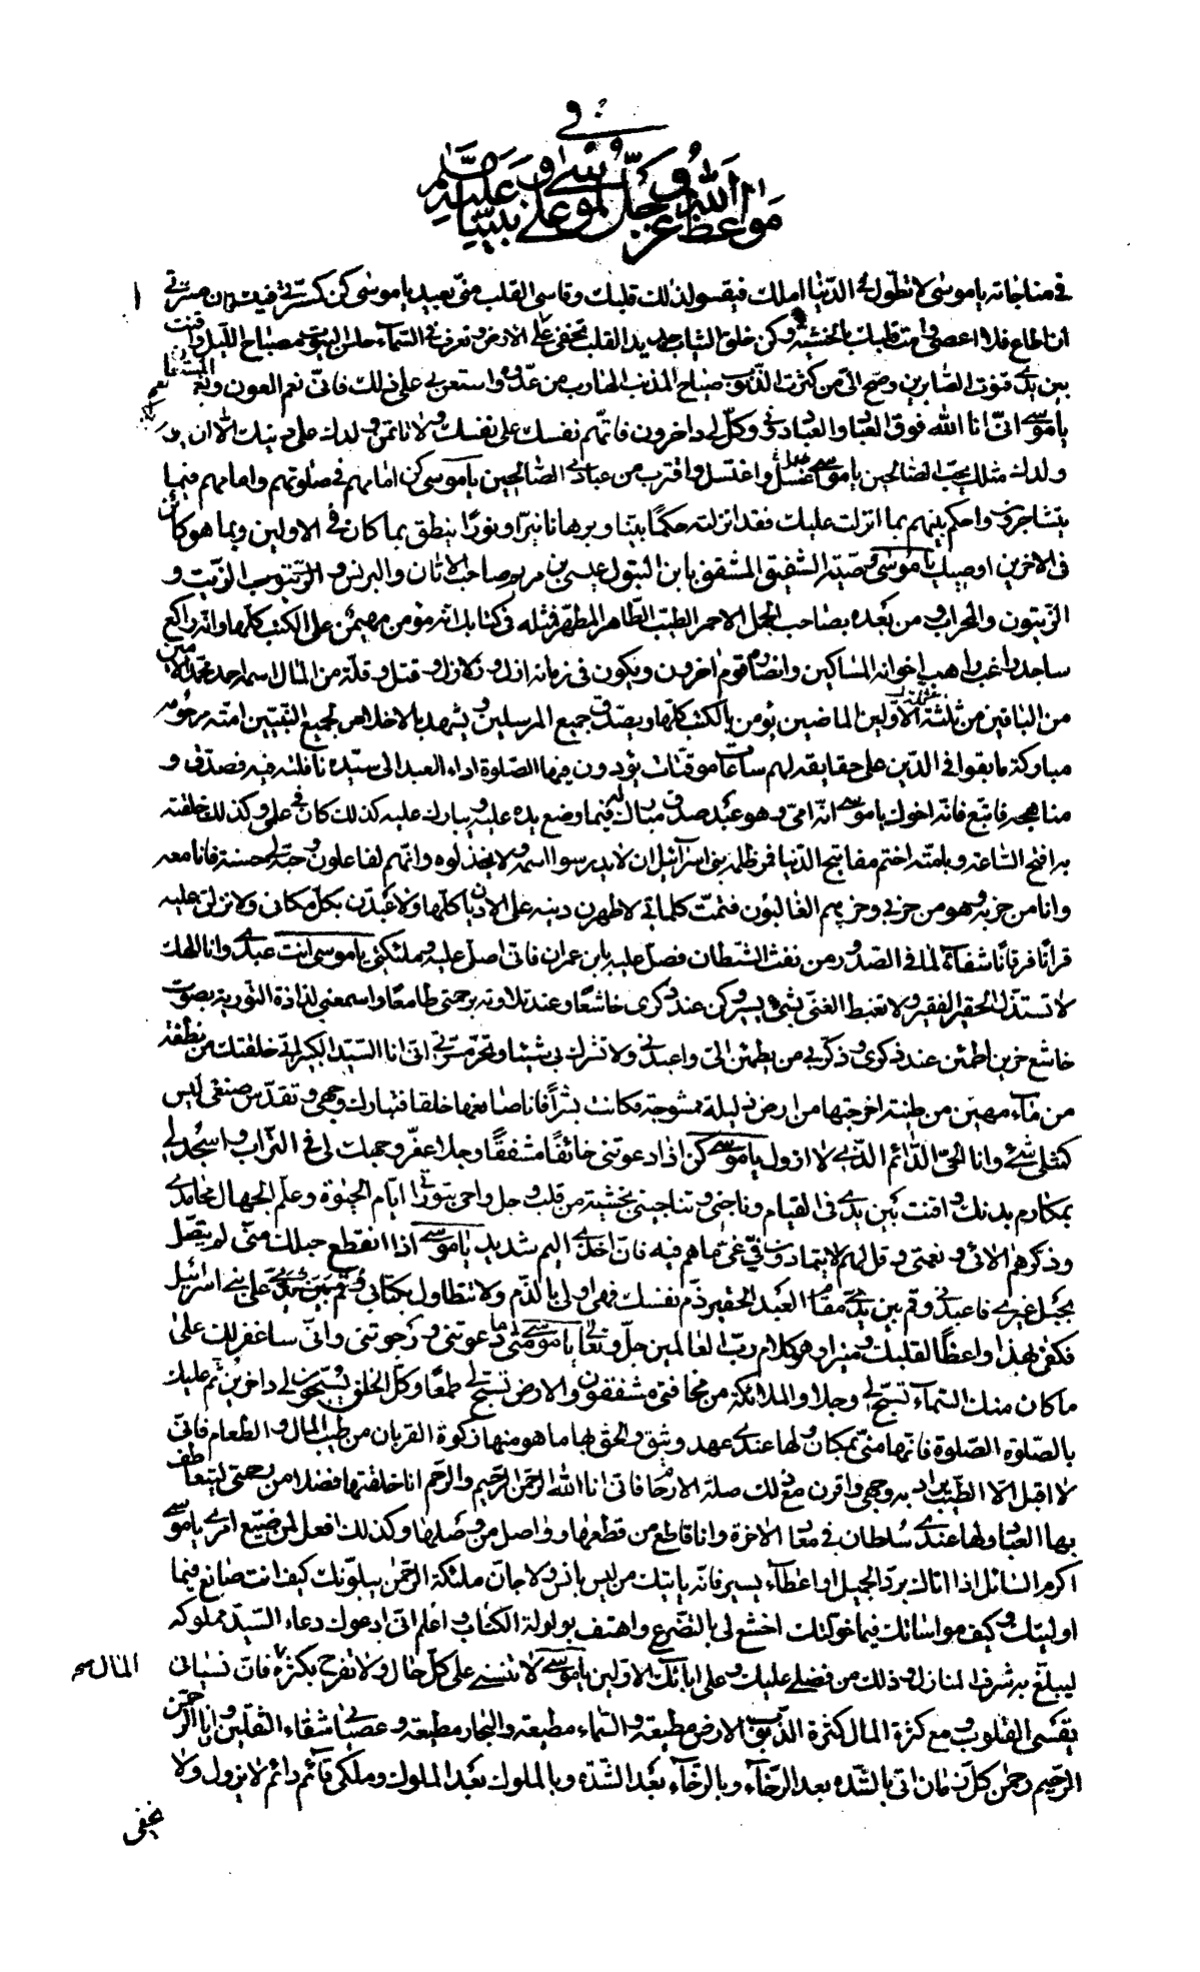 في
مواعظ الله عز وجل لموسى وعلى نبينا وعليه السلم
في مناجاته ياموسى لا تطول في الدنيا املك فيقسو لذلك قلبك وقاسى القلب منى بعيد ياموسى كن كمسرتي فيك فان مسرتي
ان اطاع فلا اعصى وامت قلبك بالخشية وكن خلق الثياب جديد القلب تخفى على الارض وتعرف في السماء حلس البيوت مصباح الليل واقنت
بين يدي قنوت الصابرين وصح الى من كثرت الذنوب صياح المذنب الهارب من عدوه واستعن بي على ذلك فانى نعم العون ونعم المستعان
ياموسى انى انا الله فوق العباد والعباد دوني وكل لى داخرون فاتهم نفسك على نفسك ولا تاتمن ولدك على دينك الا ان يكون
ولدك مثلك يحب الصالحين ياموسى اغسل واغتسل واقترب من عبادي الصالحين ياموسى كن امامهم في صلوتهم وامامهم فيما
يتشاجرون واحكم بينهم بما انزلت عليك فقد انزلته حكما بينا وبرهانا نيرا ونورا ينطق بما كان في الاولين وبما هو كائن
في الاخرين اوصيك ياموسى وصية الشفيق المشفق بابن البتول عيسى بن مريم صاحب الاتان والبرنس والزيت و
الزيتون والمحراب ومن بعده بصاحب الجمل الاحمر الطيب الطاهر المطهر فمثله في كتابك انه مؤمن مهيمن على الكتب كلها وانه راكع
ساجد راغب راهب اخوانه المساكين وانصاره قوم اخرون ويكون في زمانه ازل وزلازل وقتل وقلة من المال اسمه احمد محمد الامين
من الباقين من ثلة الاولين الماضين يؤمن بالكتب كلها ويصدق جميع المرسلين ويشهد بالاخلاص لجميع النبيين امته مرحومه
مباركة ما بقوا في الدين على حقايقه لهم ساعات موقتات يؤدون فيها الصلوة اداء العبد الى سيده نافلته فبه فصدق و
مناهجه فاتبع فانه اخوك ياموسى انه امى وهو عبد صدق مبارك له فيما وضع يده عليه ويبارك عليه كذلك كان في علمى وكذلك خلقته
به افتح الساعة وبامته اختم مفاتيح الدنيا فمر ظلمه بنى اسرائيل ان لا يدرسوا اسمه ولا يخذلوه وانهم لفاعلون وحبه لى حسنة فانا معه
وانا من حزبه وهو من حزبي وحزبهم الغالبون فتمت كلماتى لاظهرن دينه على الاديان كلها ولاعبدن بكل مكان ولانزلن عليه
قرانا فرقانا شفاء لما في الصدور من نفث الشيطان فصل عليه يابن عمران فانى اصلى عليه وملئكتى ياموسى انت عبدي وانا الهك
لا تستذل الحقير الفقير ولا تغبط الغنى بشىء يسير وكن عند ذكرى خاشعا وعند تلاوته برحمتى طامعا واسمعنى لذاذة التورية بصوت
خاشع حزين اطمئن عند ذكرى وذكر بي من يطمئن الى واعبدنى ولا تشرك بي شيئا وتحر مسرتي انى انا السيد الكبير انى خلقتك من نطفة
من ماء مهين من طينة اخرجتها من ارض ذليلة ممشوجة فكانت بشرا فانا صانعها خلقا فتبارك وجهى وتقدس صنعى ليس
كمثلى شئ وانا الحى الدائم الذي لا ازول ياموسى كن اذا دعوتنى خائفا مشفقا وجلا عفر وجهك لى في التراب واسجد لى
بمكارم بدنك واقنت بين يدي في القيام وناجنى حين تناجينى بخشية من قلب وجل واحى بتوراتى ايام الحيوة وعلم الجهال محامدى
وذكرهم الائى ونعمتى وقل لهم لا يتمادون في غى ما هم فيه فان اخذى اليم شديد ياموسى اذا انقطع حبلك منى لم يتصل
بحبل غيري فاعبدنى وقم بين يدي مقام العبد الحقير ذم نفسك فهى اولى بالذم ولا تتطاول بكتابى على بنى اسرائيل
فكفى بهذا واعظا لقلبك ومنيرا وهو كلام رب العالمين جل وتعالى ياموسى متى ما دعوتنى ورجوتنى وانى ساغفر لك على
ما كان منك السماء تسبح لى وجلا والملائكة من مخافتى مشفقون والارض تسبح لى طمعا وكل الخلق يسبحون لى داخرين ثم عليك
بالصلوة الصلوة فانها منى بمكان ولها عندى عهد وثيق والحق بها ما هو منها زكوة القربان من طيب المال والطعام فانى
لا اقبل الا الطيب يراد به وجهى واقرن مع ذلك صلة الارحام فانى انا الله الرحمن الرحيم والرحم انا خلقتها فضلا من رحمتى ليتعاطف
بها العباد ولها عندي سلطان في معاد الاخرة وانا قاطع من قطعها وواصل من وصلها وكذلك افعل بمن ضيع امرى ياموسى
اكرم السائل اذا اتاك برد جميل او اعطاء يسير فانه ياتيك من ليس بانس ولا جان ملئكة الرحمن يبلونك كيف انت صانع فيما
اوليتك وكيف مواساتك فيما خولتك اخشع لى بالتضرع واهتف بولولة الكتاب واعلم انى ادعوك دعاء السيد مملوكه
ليبلغ به شرف المنازل وذلك من فضلى عليك وعلى ابائك الاولين ياموسى لا تنسنى على كل حال ولا تفرح بكثرة فان نسيانى
المال صح
يقسى القلوب ومع كثرة المال كثرة الذنوب الارض مطيعة والسماء مطيعة والبحار مطيعة وعصيانى شقاء الثقلين وانا الرحمن
الرحيم رحمن كل زمان اتى بالشدة بعد الرخاء وبالرخاء بعد الشدة وبالملوك بعد الملوك وملكى قائم دائم لا يزول ولا
يخفى